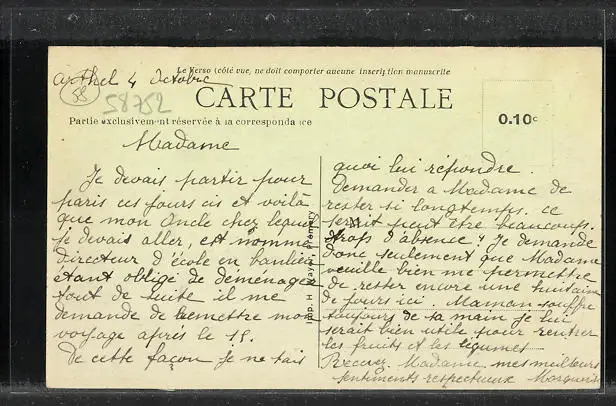 Le Verso (côté vue, ne doit comporter aucune inscription manuscrite
Arthel 4 octobre
58
58752
CARTE POSTALE
Partie exclusivement réservée à la correspondance
0.10c
Madame
Je devais partir pour
paris ces jours cis et voilà
que mon Oncle chez lequel
je devais aller, est nommé
directeur d'école en banlieu
étant obligé de déménager
tout de suite il me
demande de remettre mon
voyage après le 15.
De cette façon je ne sais
Imp. H. Prémery
quoi lui répondre.
Demander a Madame de
rester si longtemps. ce
serait peut être beaucoup
trops d'absence, Je demande
donc seulement que Madame
veuille bien me permettre
de rester encore une huitaine
de jours ici. Maman souffre
toujours de sa main je lui
serait bien utile pour rentrer
les fruits et les légumes
Recevez Madame mes meilleurs
sentiments respectueux